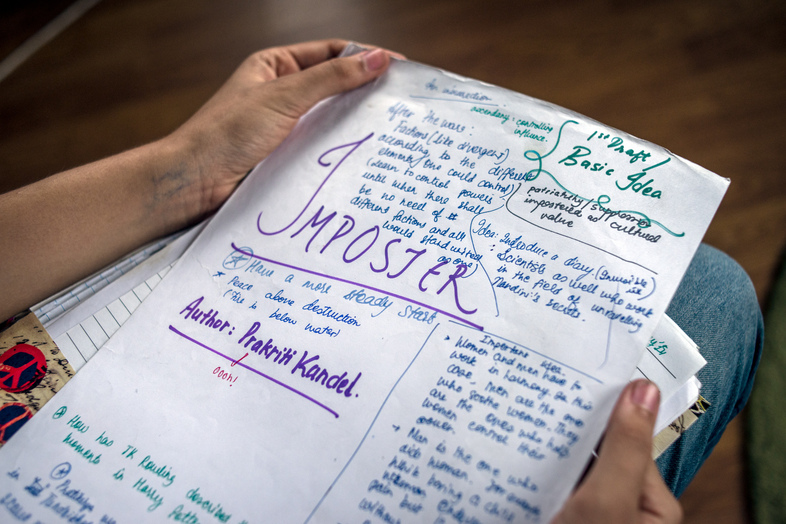 An interaction
ascendency: controlling
influence.
1st Draft/
Basic Idea
patriarchy/suppression
imposter ed as cultural
value
After the wars:
Factions (like divergent)
according to the different
elements one could control)
(learn to control powers
until when there shall
be no need of
different factions and all
would stand united
as one)
IMPOSTER
Idea: Introduce a diary (Invisible ink)
: Scientists as well who work
in the field of unravelling
Nandini's secrets.
Have a more steady start
* Peace above destruction
(Fire is below water)
Author: Prakriti Kandel.
oooh!
Important idea.
* Women and men have to
work in harmony for this
care. Men are the one
who soothe women. They
are the ones who help
women control their
power.
Man is the one who
aids woman. For example
He's being a child
Woman
pain but
without
How has JK Rowling described
moments in Harry Potter